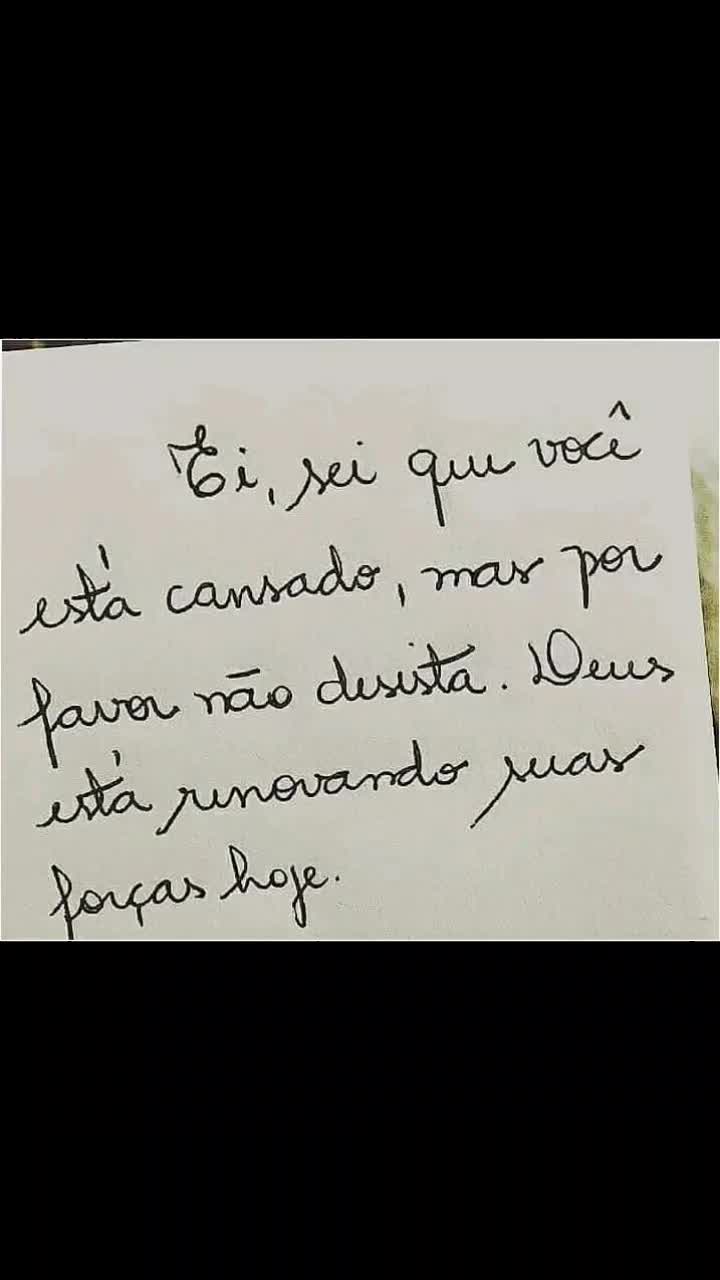 Ei, sei que você
está cansado, mas por
favor não desista. Deus
está renovando suas
forças hoje.